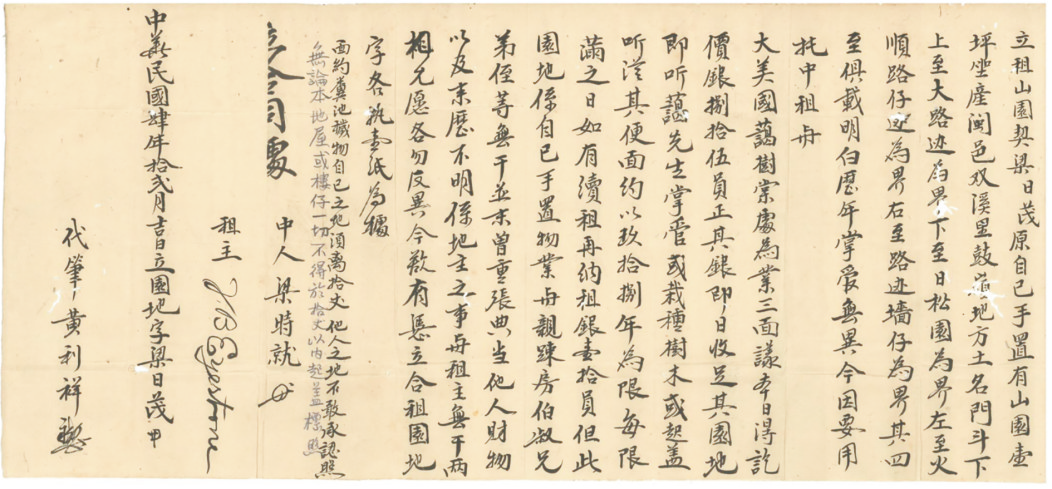 立租山園契梁日茂原自己手置有山園壹
坪坐產閩邑双溪里鼓嶺地方土名門斗下
上至大路迹為界下至日松園為界左至火
順路仔迹為界右至路迹墻仔為界其四
至俱載明白歷年掌爱無異今因要用
托中租与
大美國藹樹棠處為業三面議夲日得訖
價銀捌拾伍員正其銀即日收足其園地
即听藹先生掌管或栽種樹木或起盖
听從其便面約以玖拾捌年為限每限
滿之日如有續租再納租銀壹拾員但此
園地係自己手置物業与親踈房伯叔兄
弟侄等無干並未曾重張典当他人財物
以及来歷不明係地主之事与租主無干两
相允愿各勿反異今欲有憑立合租園地
字各执壹紙為據
面約糞池穢物自己之地須离拾丈他人之地不敢承認照
無論本地屋或樓仔一切不得於拾丈以内起盖標照
立合同處
中人 梁時就
租主 J.B. Eyestone
中華民國肆年拾弍月吉日立園地字梁日茂
代筆 黃利祥